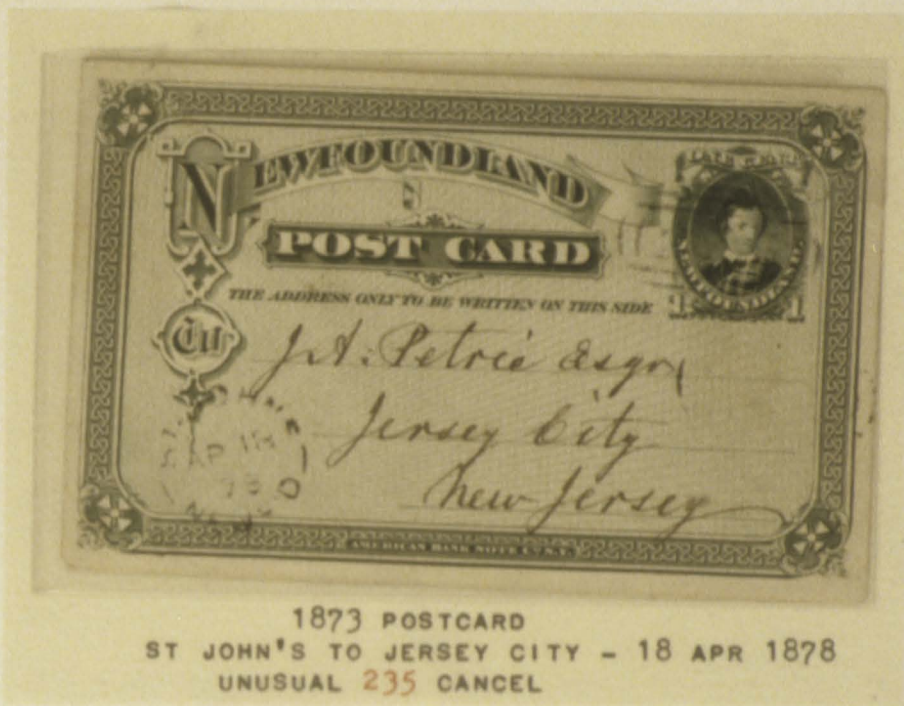 NEWFOUNDLAND
POST CARD
THE ADDRESS ONLY TO BE WRITTEN ON THIS SIDE
NEWFOUNDLAND.
1 1
To
J. A. Petrie Esqr
Jersey City
New Jersey
AP 18
AMERICAN BANK NOTE Co. N.Y.
1873 POSTCARD
ST JOHN'S TO JERSEY CITY - 18 APR 1878
UNUSUAL 235 CANCEL